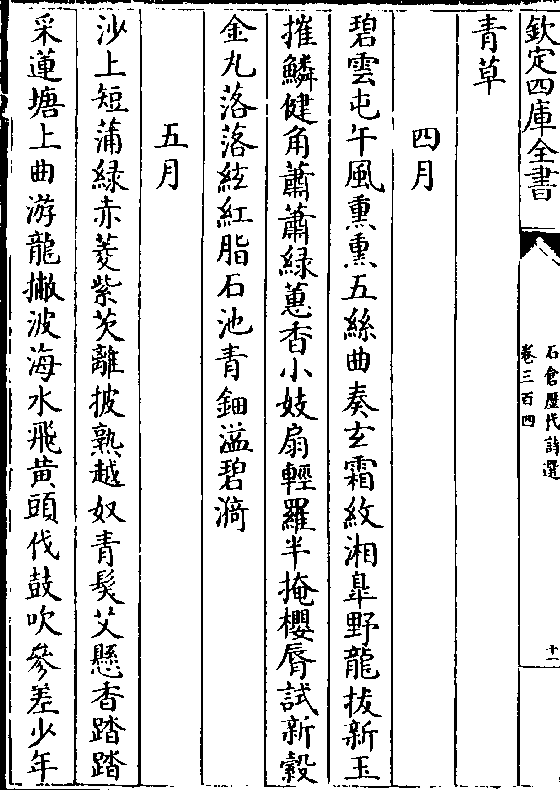 欽定四庫全書
石倉歷代詩選
卷三百四
十一
青草
四月
碧雲屯午風熏熏五絲曲奏玄霜紋湘臯野龍拔新玉
摧鱗健角蕭蕭緑蕙香小妓扇輕羅半掩櫻脣試新縠
金丸落落絃紅脂石池青鈿溢碧漪
五月
沙上短蒲緑赤菱紫茨離披熟越奴青髮艾懸香踏踏
采蓮塘上曲游龍撇波海水飛黄頭伐鼓吹參差少年